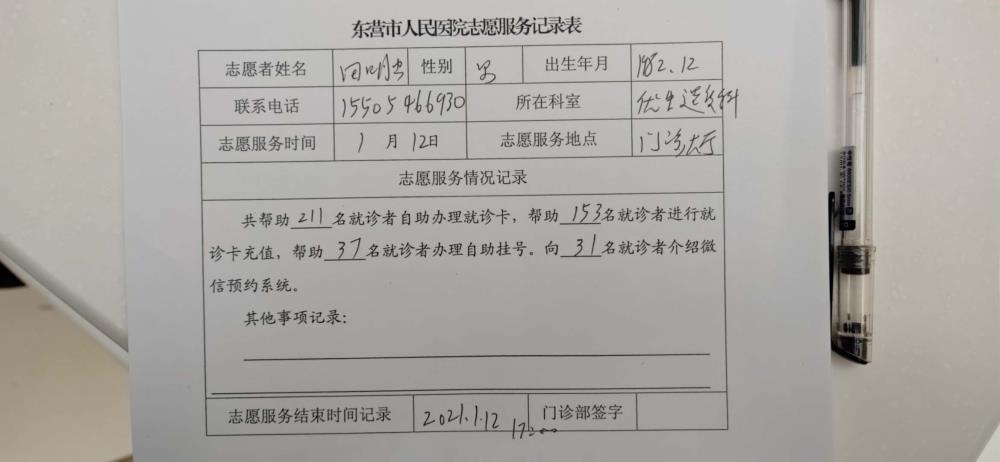 东营市人民医院志愿服务记录表
志愿者姓名 性别 男 出生年月 1982.12
联系电话 15505466930 所在科室 优生遗传科
志愿服务时间 1月12日 志愿服务地点 门诊大厅
志愿服务情况记录
共帮助211名就诊者自助办理就诊卡，帮助153名就诊者进行就
诊卡充值，帮助37名就诊者办理自助挂号。向31名就诊者介绍微
信预约系统。
其他事项记录：
志愿服务结束时间记录 2021.1.12 17:00 门诊部签字